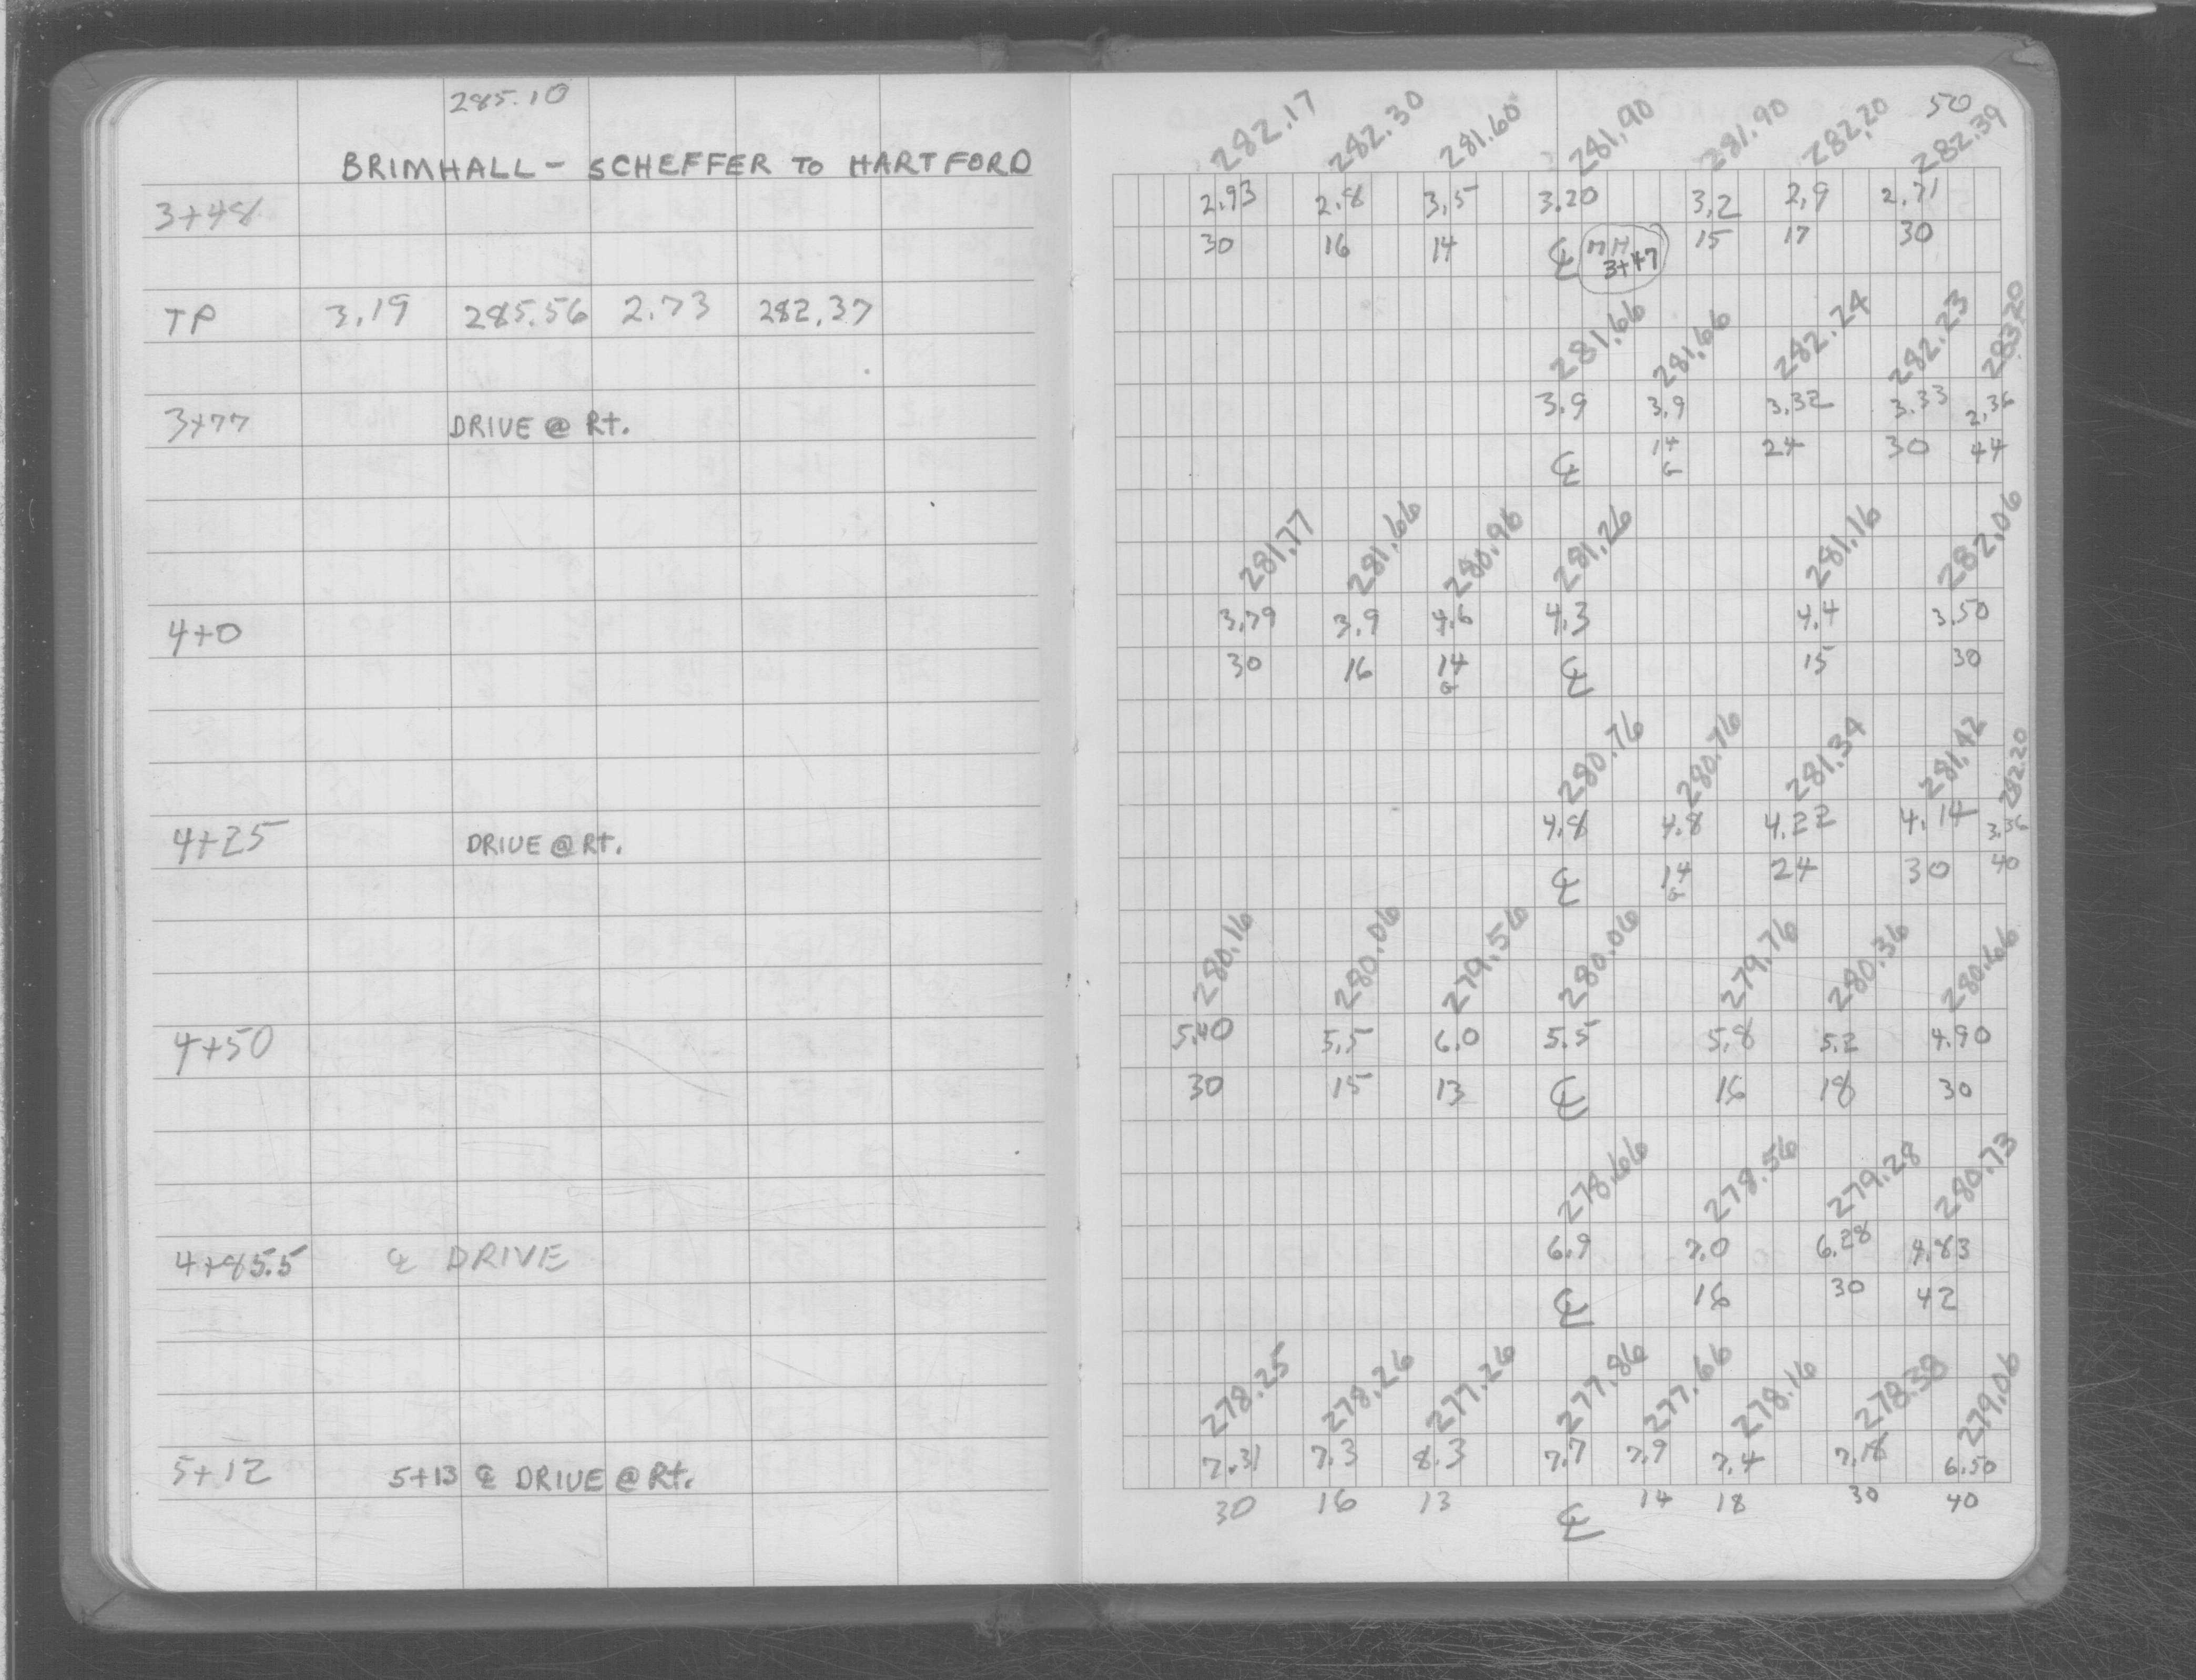 285.10
BRIMHALL - SCHEFFER TO HARTFORD
3+48
TP 3.19 285.56 2.73 282.37
3+77 DRIVE @ Rt.
4+0
4+25 DRIVE @ Rt.
4+50
4+85.5 ℄ DRIVE
5+12 5+13 ℄ DRIVE @ Rt.
50
282.17 282.30 281.60 281.90 281.90 282.20 282.39
2.93 2.8 3.5 3.20 3.2 2.9 2.71
30 16 14 ℄ MH 3+47 15 17 30
281.66 281.66 282.24 282.23 283.20
3.9 3.9 3.32 3.33 2.36
℄ 14 24 30 44
G
281.77 281.66 280.96 281.26 281.16 282.06
3.79 3.9 4.6 4.3 4.4 3.50
30 16 14 ℄ 15 30
G
280.76 280.76 281.34 281.42 282.20
4.8 4.8 4.22 4.14 3.36
℄ 14 24 30 40
G
280.16 280.06 279.56 280.06 279.76 280.36 280.66
5.40 5.5 6.0 5.5 5.8 5.2 4.90
30 15 13 ℄ 16 18 30
278.66 278.56 279.28 280.73
6.9 7.0 6.28 4.83
℄ 16 30 42
278.25 278.26 277.26 277.86 277.66 278.16 278.38 279.06
7.31 7.3 8.3 7.7 7.9 7.4 7.18 6.50
30 16 13 ℄ 14 18 30 40